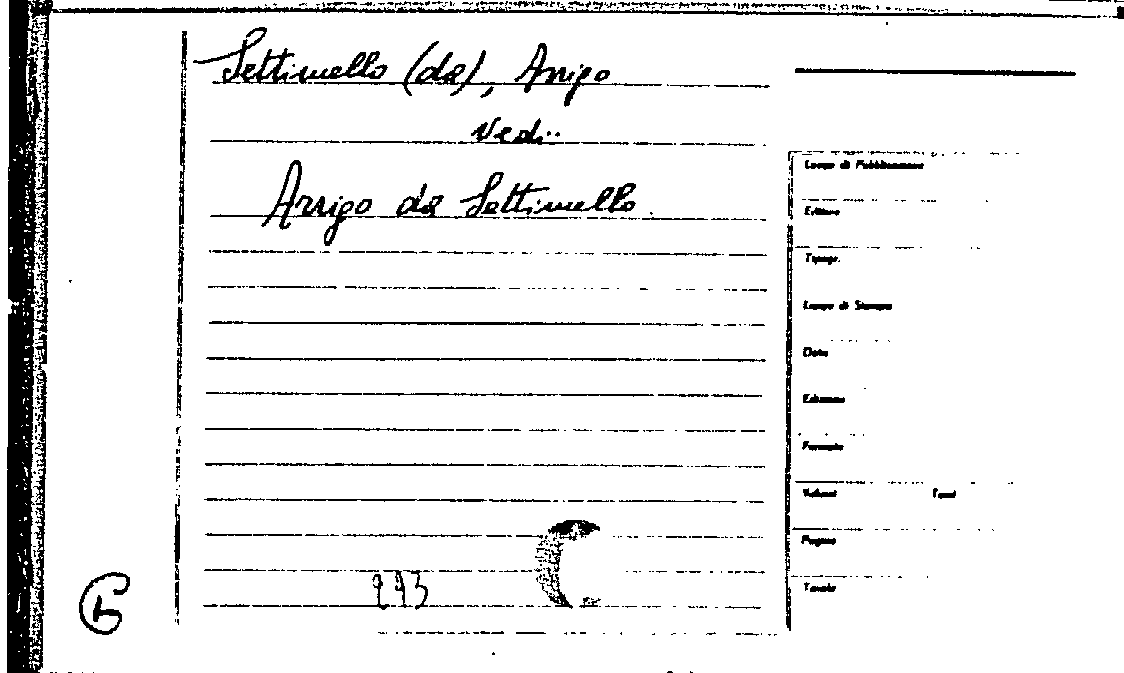 Settimello (da), Arrigo
Vedi..
Arrigo da Settimello.
Luogo di Pubblicazione
Editore
Tipogr.
Luogo di Stampa
Data
Edizione
Formato
Volumi Tomi
Pagine
Tavole
293